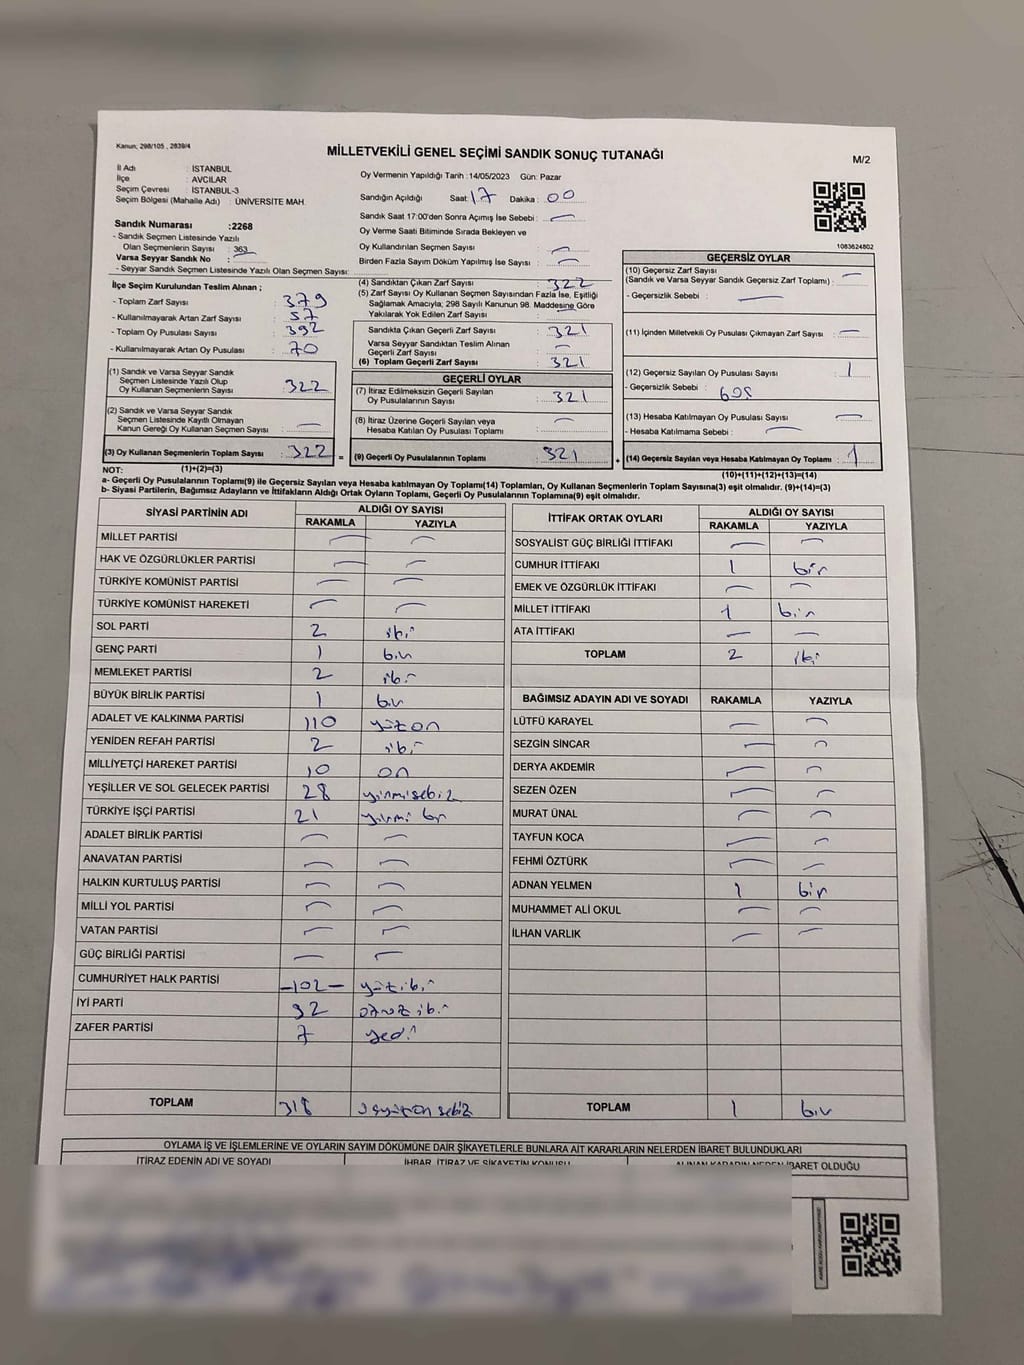 Kanun; 298/105 , 2839/4
MİLLETVEKİLİ GENEL SEÇİMİ SANDIK SONUÇ TUTANAĞI
M/2
İl Adı : İSTANBUL
İlçe : AVCILAR
Seçim Çevresi : İSTANBUL-3
Seçim Bölgesi (Mahalle Adı) : ÜNİVERSİTE MAH.
Oy Vermenin Yapıldığı Tarih :14/05/2023 Gün: Pazar
Sandığın Açıldığı Saat: 17 Dakika : 00
Sandık Saat 17:00'den Sonra Açılmış İse Sebebi : —
Oy Verme Saati Bitiminde Sırada Bekleyen ve
Oy Kullandırılan Seçmen Sayısı : —
Birden Fazla Sayım Döküm Yapılmış İse Sayısı : —
Sandık Numarası :2268
- Sandık Seçmen Listesinde Yazılı
Olan Seçmenlerin Sayısı : 363
Varsa Seyyar Sandık No : —
- Seyyar Sandık Seçmen Listesinde Yazılı Olan Seçmen Sayısı:
1083624802
İlçe Seçim Kurulundan Teslim Alınan ;
- Toplam Zarf Sayısı : 379
- Kullanılmayarak Artan Zarf Sayısı : 57
- Toplam Oy Pusulası Sayısı : 392
- Kullanılmayarak Artan Oy Pusulası : 70
(1) Sandık ve Varsa Seyyar Sandık
Seçmen Listesinde Yazılı Olup
Oy Kullanan Seçmenlerin Sayısı : 322
(2) Sandık ve Varsa Seyyar Sandık
Seçmen Listesinde Kayıtlı Olmayan
Kanun Gereği Oy Kullanan Seçmen Sayısı : —
(3) Oy Kullanan Seçmenlerin Toplam Sayısı : 322 =
(4) Sandıktan Çıkan Zarf Sayısı : 322
(5) Zarf Sayısı Oy Kullanan Seçmen Sayısından Fazla İse, Eşitliği
Sağlamak Amacıyla; 298 Sayılı Kanunun 98. Maddesine Göre
Yakılarak Yok Edilen Zarf Sayısı : —
Sandıkta Çıkan Geçerli Zarf Sayısı : 321
Varsa Seyyar Sandıktan Teslim Alınan
Geçerli Zarf Sayısı : —
(6) Toplam Geçerli Zarf Sayısı : 321
GEÇERLİ OYLAR
(7) İtiraz Edilmeksizin Geçerli Sayılan
Oy Pusulalarının Sayısı : 321
(8) İtiraz Üzerine Geçerli Sayılan veya
Hesaba Katılan Oy Pusulası Toplamı : —
(9) Geçerli Oy Pusulalarının Toplamı : 321 +
GEÇERSİZ OYLAR
(10) Geçersiz Zarf Sayısı
(Sandık ve Varsa Seyyar Sandık Geçersiz Zarf Toplamı) : —
- Geçersizlik Sebebi : —
(11) İçinden Milletvekili Oy Pusulası Çıkmayan Zarf Sayısı : —
(12) Geçersiz Sayılan Oy Pusulası Sayısı : 1
- Geçersizlik Sebebi : boş
(13) Hesaba Katılmayan Oy Pusulası Sayısı : —
- Hesaba Katılmama Sebebi : —
(14) Geçersiz Sayılan veya Hesaba Katılmayan Oy Toplamı : 1
NOT: (1)+(2)=(3)
(10)+(11)+(12)+(13)=(14)
a- Geçerli Oy Pusulalarının Toplamı(9) ile Geçersiz Sayılan veya Hesaba katılmayan Oy Toplamı(14) Toplamları, Oy Kullanan Seçmenlerin Toplam Sayısına(3) eşit olmalıdır. (9)+(14)=(3)
b- Siyasi Partilerin, Bağımsız Adayların ve İttifakların Aldığı Ortak Oyların Toplamı, Geçerli Oy Pusulalarının Toplamına(9) eşit olmalıdır.
SİYASİ PARTİNİN ADI ALDIĞI OY SAYISI
RAKAMLA YAZIYLA
MİLLET PARTİSİ — —
HAK VE ÖZGÜRLÜKLER PARTİSİ — —
TÜRKİYE KOMÜNİST PARTİSİ — —
TÜRKİYE KOMÜNİST HAREKETİ — —
SOL PARTİ 2 iki
GENÇ PARTİ 1 bir
MEMLEKET PARTİSİ 2 iki
BÜYÜK BİRLİK PARTİSİ 1 bir
ADALET VE KALKINMA PARTİSİ 110 yüzon
YENİDEN REFAH PARTİSİ 2 iki
MİLLİYETÇİ HAREKET PARTİSİ 10 on
YEŞİLLER VE SOL GELECEK PARTİSİ 28 yirmisekiz
TÜRKİYE İŞÇİ PARTİSİ 21 yirmi bir
ADALET BİRLİK PARTİSİ — —
ANAVATAN PARTİSİ — —
HALKIN KURTULUŞ PARTİSİ — —
MİLLİ YOL PARTİSİ — —
VATAN PARTİSİ — —
GÜÇ BİRLİĞİ PARTİSİ — —
CUMHURİYET HALK PARTİSİ -102- yüziki
İYİ PARTİ 32 otuziki
ZAFER PARTİSİ 7 yedi
TOPLAM 318 üçyüzon sekiz
İTTİFAK ORTAK OYLARI ALDIĞI OY SAYISI
RAKAMLA YAZIYLA
SOSYALİST GÜÇ BİRLİĞİ İTTİFAKI — —
CUMHUR İTTİFAKI 1 bir
EMEK VE ÖZGÜRLÜK İTTİFAKI — —
MİLLET İTTİFAKI 1 bir
ATA İTTİFAKI — —
TOPLAM 2 iki
BAĞIMSIZ ADAYIN ADI VE SOYADI RAKAMLA YAZIYLA
LÜTFÜ KARAYEL — —
SEZGİN SİNCAR — —
DERYA AKDEMİR — —
SEZEN ÖZEN — —
MURAT ÜNAL — —
TAYFUN KOCA — —
FEHMİ ÖZTÜRK — —
ADNAN YELMEN 1 bir
MUHAMMET ALİ OKUL — —
İLHAN VARLIK — —
TOPLAM 1 bir
OYLAMA İŞ VE İŞLEMLERİNE VE OYLARIN SAYIM DÖKÜMÜNE DAİR ŞİKAYETLERLE BUNLARA AİT KARARLARIN NELERDEN İBARET BULUNDUKLARI
İTİRAZ EDENİN ADI VE SOYADI İHBAR, İTİRAZ VE ŞİKAYETİN KONUSU ALINAN KARARIN NEDEN İBARET OLDUĞU